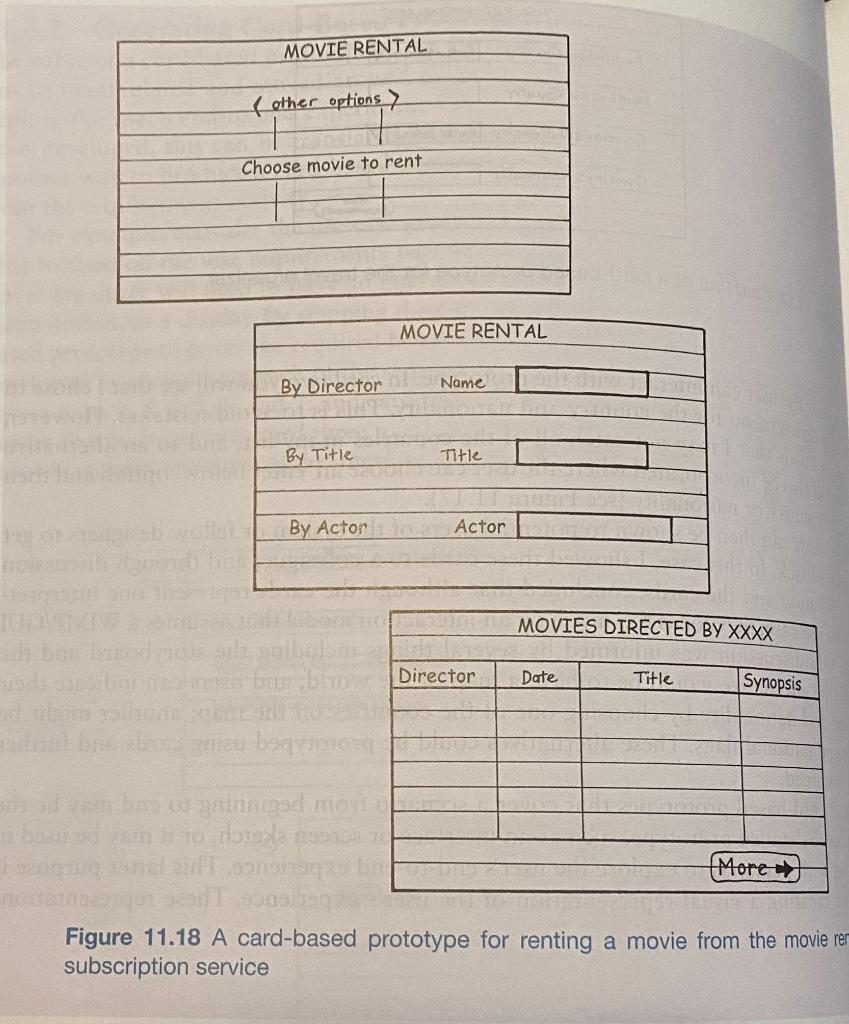 MOVIE RENTAL
< other options >
Choose movie to rent
MOVIE RENTAL
By Director Name
By Title Title
By Actor Actor
MOVIES DIRECTED BY XXXX
Director Date Title Synopsis
More →
Figure 11.18 A card-based prototype for renting a movie from the movie
subscription service